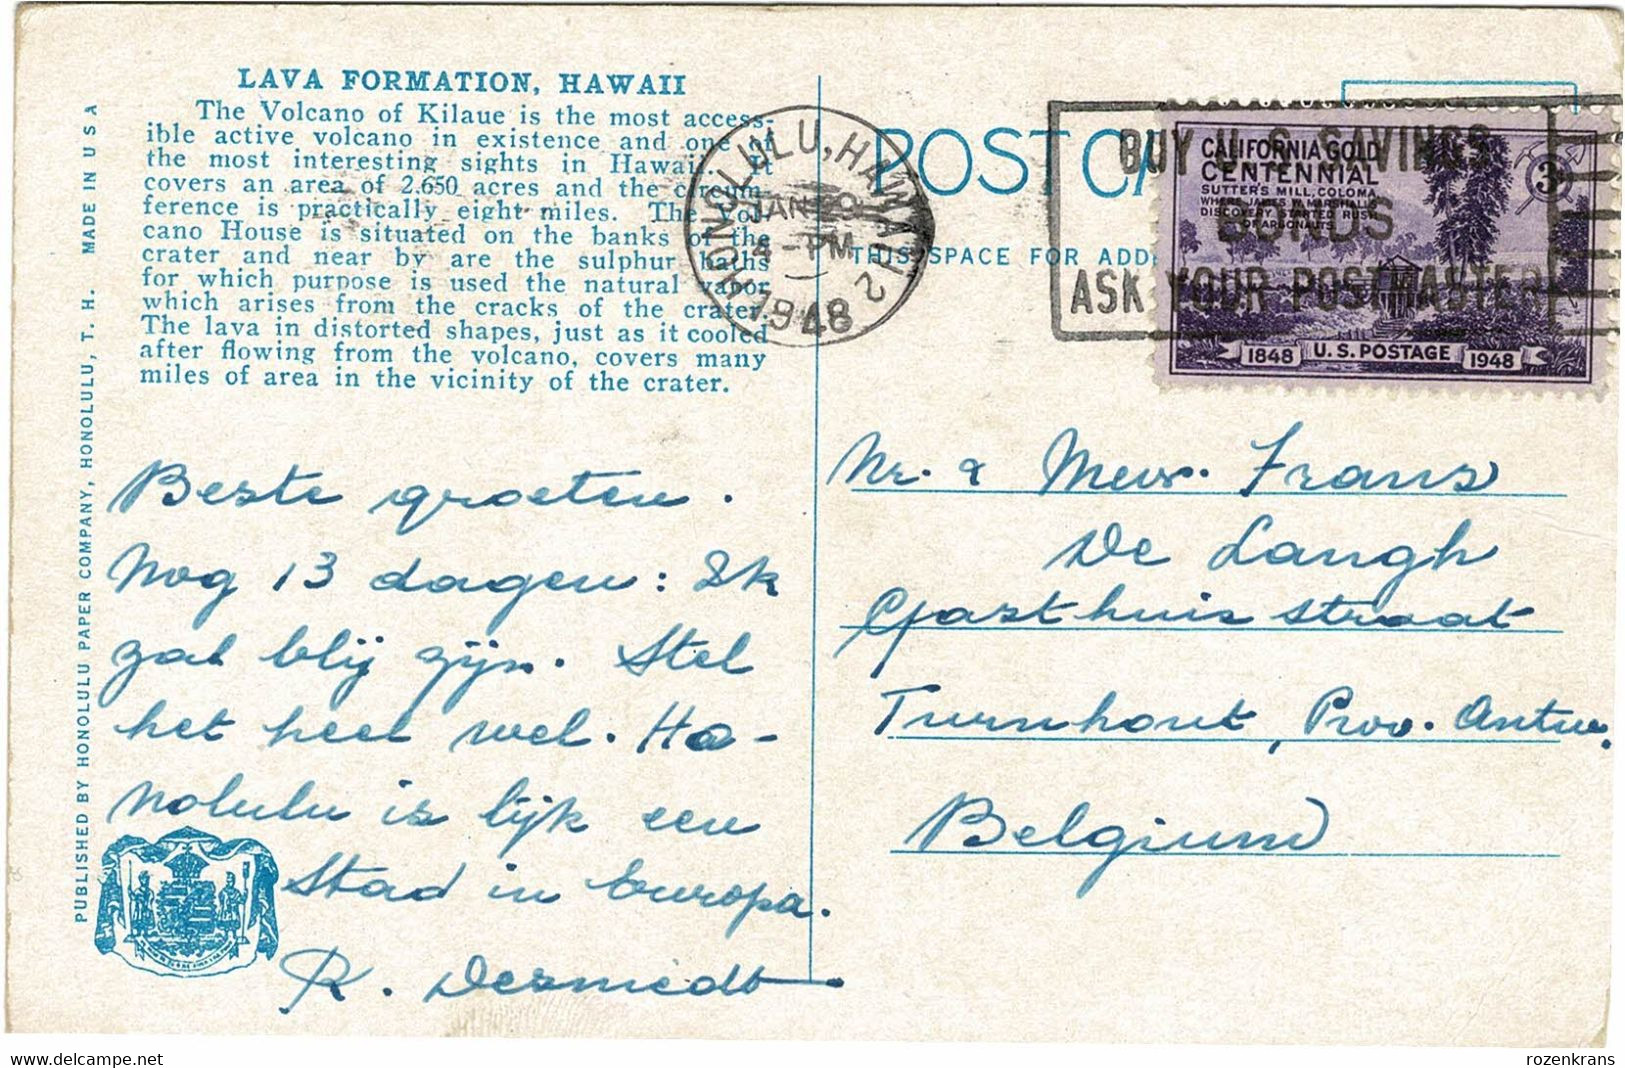 LAVA FORMATION, HAWAII
The Volcano of Kilaue is the most access-
ible active volcano in existence and one of
the most interesting sights in Hawaii. It
covers an area of 2,650 acres and the circum-
ference is practically eight miles. The Vol-
cano House is situated on the banks of the
crater and near by are the sulphur baths
for which purpose is used the natural vapor
which arises from the cracks of the crater.
The lava in distorted shapes, just as it cooled
after flowing from the volcano, covers many
miles of area in the vicinity of the crater.
PUBLISHED BY HONOLULU PAPER COMPANY, HONOLULU, T. H. MADE IN U S A
Beste groeten.
Nog 13 dagen: Ik
zal blij zijn. Stel
het heel wel. Ho-
nolulu is lijk een
stad in Europa.
R. Desmedt
HONOLULU, HAWAII 2
JAN 29
4 - PM
1948
POST CA
THIS SPACE FOR ADD
BUY U.S. SAVINGS
BONDS
ASK YOUR POSTMASTER
CALIFORNIA GOLD
CENTENNIAL
SUTTER'S MILL, COLOMA
WHERE JAMES W. MARSHALL'S
DISCOVERY STARTED RUSH
OF ARGONAUTS
3¢
1848 U.S. POSTAGE 1948
Mr. & Mevr. Frans
De Langh
Gasthuisstraat
Turnhout, Prov. Antw.
Belgium
www.delcampe.net
rozenkrans